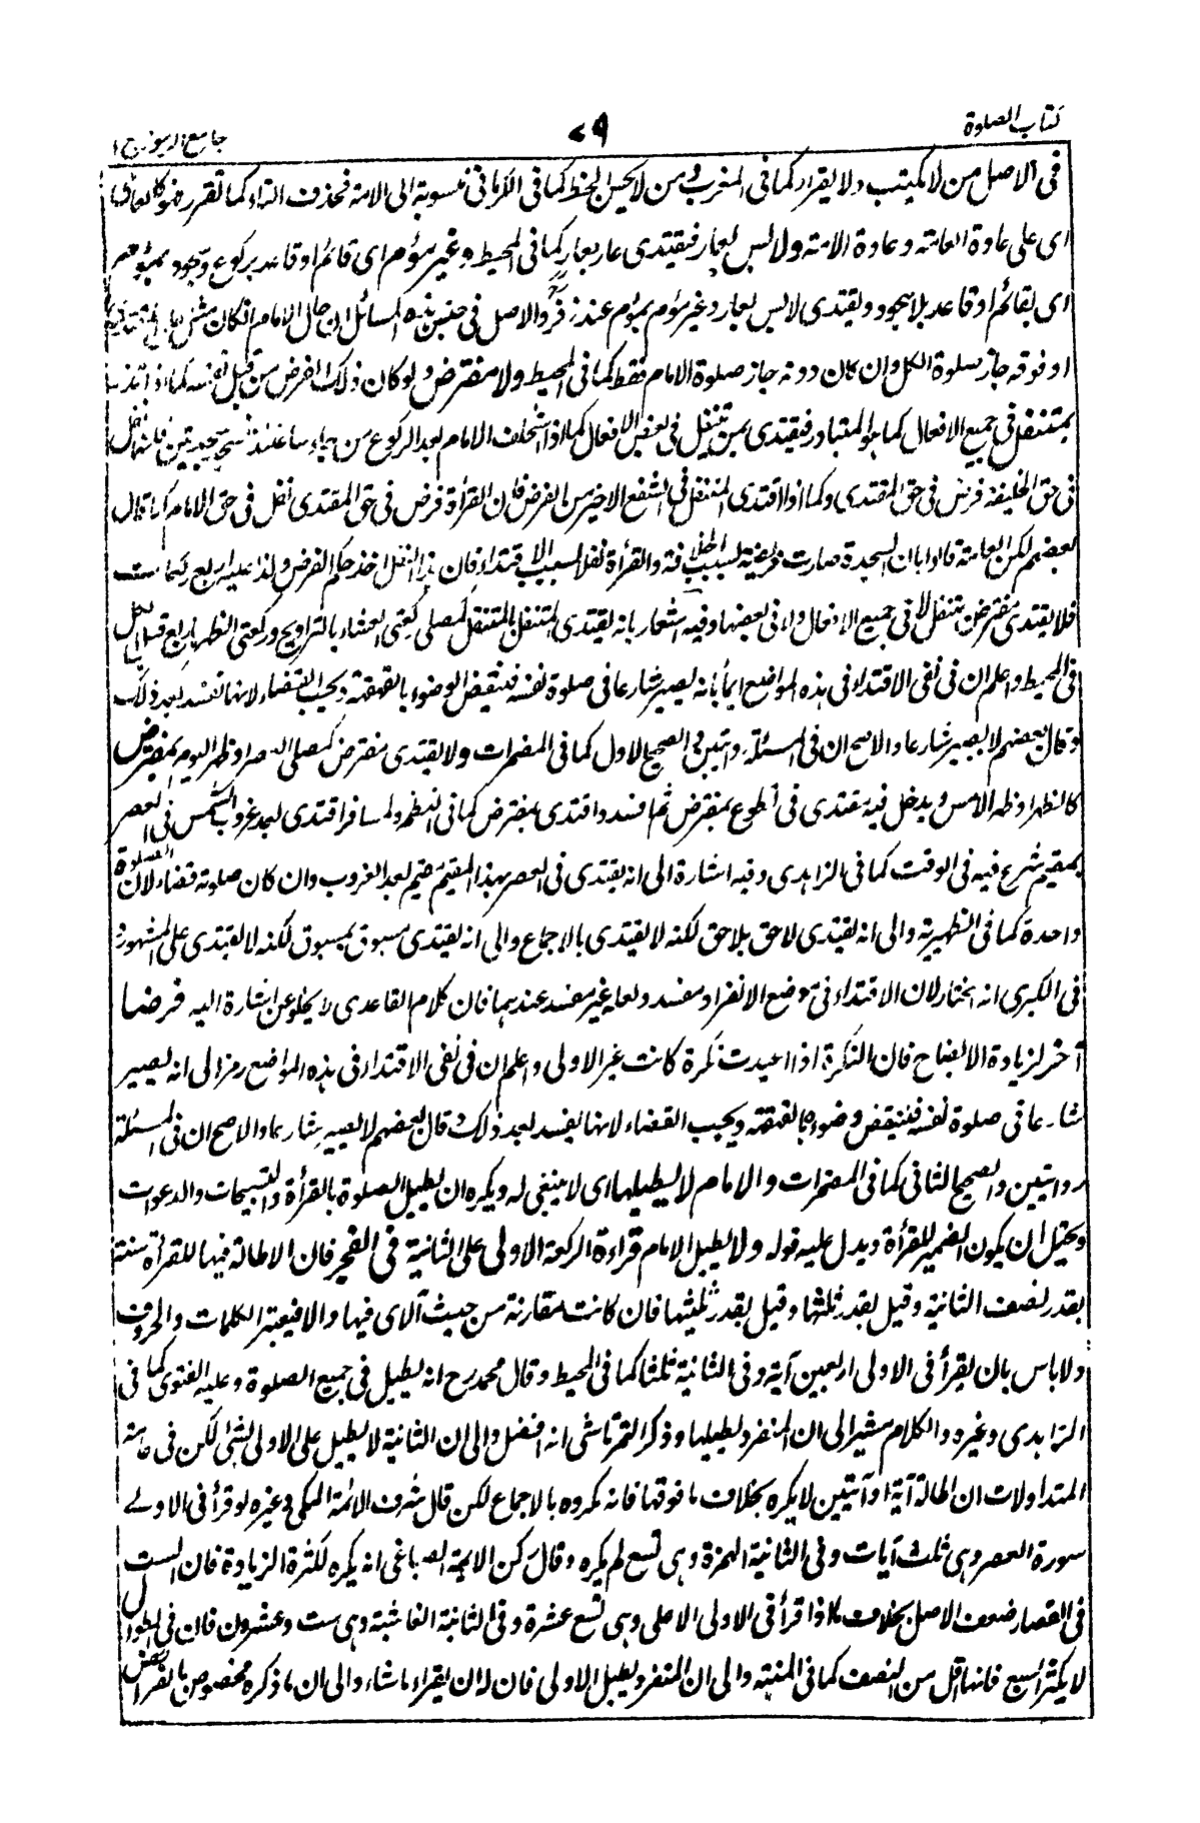 كتاب الصلوة
٧٩
جامع الرموز ج ١
فى الاصل من لا يكتب ولا يقرأ كما فى المغرب ومن لا يحسن الخط كما فى الكرمانى منسوبة الى الامة فحذف التاء كما تقرر
اى على عادة العامة وعادة الامة ولا لابس بعار فيقتدى عار بعار كما فى المحيط وغير مؤم اى قائم او قاعد بركوع وسجود بمؤم
اى بقائم او قاعد بلا سجود ويقتدى لابس بعار وغير مؤم بمؤم عند زفر والاصل فى جنس هذه المسائل ان حال الامام ان كان مثل
او فوقه جاز صلوة الكل وان كان دونه جاز صلوة الامام فقط كما فى المحيط ولا مفترض ولو كان ذلك الفرض من قبل نفسه كما اذا نذر
بمتنفل فى جميع الافعال كما هو المتبادر فيقتدى بمن تنفل فى بعض الافعال كما اذا استخلف الامام بعد الركوع من جاء ساعتئذ
فى حق الخليفة فرض فى حق المقتدى وكما اذا اقتدى المتنفل فى الشفع الاخير من الفرض فان القرأة فرض فى حق المقتدى نفل فى حق الامام كما قال
بعضهم لكن العامة قالوا بان السجدة صارت فريضة بسبب الخلافة والقرأة نفلا بسبب الاقتداء فان هذا النفل اخذ حكم الفرض ولذا عليه اربع ركعات
فلا يقتدى مفترض بتنفل لا فى جميع الافعال ولا فى بعضها وفيه اشعار بانه يقتدى المتنفل بالمتنفل كمصلى ركعتى العشاء بالتراويح وركعتى الظهر باربع قبل
فى المحيط واعلم ان فى نفى الاقتداء فى هذه المواضع ايماء بانه يصير شارعا فى صلوة نفسه فينتقض الوضوء بالقهقهة ويجب القضاء لانها تفسد بعد ذلك
وقال بعضهم لا يصير شارعا والاصح ان فى المسئلة روايتين والصحيح الاول كما فى المضمرات ولا يقتدى مفترض كمصلى العصر او ظهر اليوم بمفترض
كالظهر او ظهر الامس ويدخل فيه مقتدى فى تطوع بمفترض ثم افسد واقتدى بمفترض كما فى النظم ولمسافر اقتدى بعد غروب الشمس فى العصر
بمقيم شرع فيه فى الوقت كما فى الزاهدى وفيه اشارة الى انه يقتدى فى العصر بهذا المقيم مقيم بعد الغروب وان كان صلوته قضاء لان الصلوة
واحدة كما فى الظهيرية والى انه يقتدى لاحق بلاحق لكنه لا يقتدى بالاجماع والى انه يقتدى مسبوق بمسبوق لكنه لا يقتدى على المشهور
فى الكبرى انه المختار لان الاقتداء فى موضع الانفراد مفسد ولعله غير مفسد عندهما فان كلام القاعدى لا يخلو عن اشارة اليه فرضا
آخر لزيادة الايضاح فان النكرة اذا اعيدت نكرة كانت غير الاولى واعلم ان فى نفى الاقتداء فى هذه المواضع رمزا الى انه يصير
شارعا فى صلوة نفسه فينتقض وضوءه بالقهقهة ويجب القضاء لانها يفسد بعد ذلك وقال بعضهم لا يصير شارعا والاصح ان فى المسئلة
روايتين والصحيح الثانى كما فى المضمرات والامام لا يطيلها اى لا ينبغى له ويكره ان يطيل الصلوة بالقرأة والتسبيحات والدعوات
ويحتمل ان يكون الضمير للقرأة ويدل عليه قوله ولا يطيل الامام قراءة الركعة الاولى على الثانية فى الفجر فان الاطالة فيها للقرأة سنة
بقدر نصف الثانية وقيل بقدر ثلثها وقيل بقدر ثلثيها فان كانت متقارنة من حيث الآى فيها والا فيعتبر الكلمات والحروف
ولا باس بان يقرأ فى الاولى اربعين آية وفى الثانية ثلثا كما فى المحيط وقال محمد رح انه يطيل فى جميع الصلوة وعليه الفتوى كما فى
الزاهدى وغيره والكلام مشير الى ان المنفرد يطيلها وذكر التمرتاشى انه افضل والى ان الثانية لا يطيل على الاولى لشئ لكن فى عامة
المتداولات ان اطالة آية او آيتين لا يكره بخلاف ما فوقها فانه مكروه بالاجماع لكن قال شرف الائمة المكى وغيره لو قرأ فى الاولى
سورة العصر وهى ثلث آيات وفى الثانية الهمزة وهى تسع لم يكره وقال ركن الائمة الصباغى انه يكره لكثرة الزيادة فان الست
فى القصار ضعف الاصل بخلاف ما اذا قرأ فى الاولى الاعلى وهى تسع عشرة وفى الثانية الغاشية وهى ست وعشرون فان فى الطوال
لا يكثر السبع فانها اقل من النصف كما فى المنية والى ان المنفرد يطيل الاولى فان له ان يقراء ما شاء والى ان ما ذكره مخصوص بالفرائض